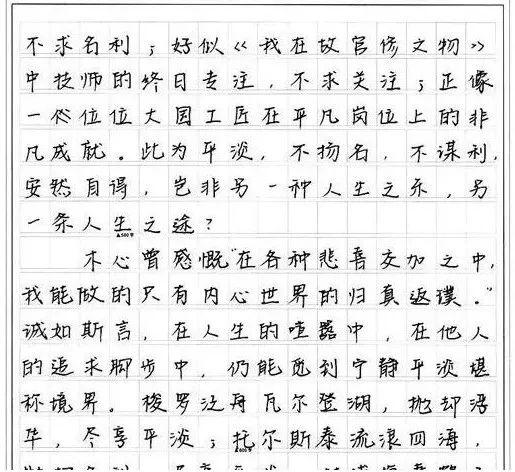 不求名利；好似《我在故宫修文物》
中技师的终日专注，不求关注；正像
一位位大国工匠在平凡岗位上的非
凡成就。此为平淡，不扬名，不谋利，
安然自得，岂非另一种人生之乐，另
一条人生之途？
▲500字
木心曾感慨“在各种悲喜交加之中，
我能做的只有内心世界的归真返璞。”
诚如斯言，在人生的喧嚣中，在他人
的追求脚步中，仍能觅到宁静平淡堪
称境界。梭罗泛舟瓦尔登湖，抛却浮
华，尽享平淡；托尔斯泰流浪四海，
▲600字